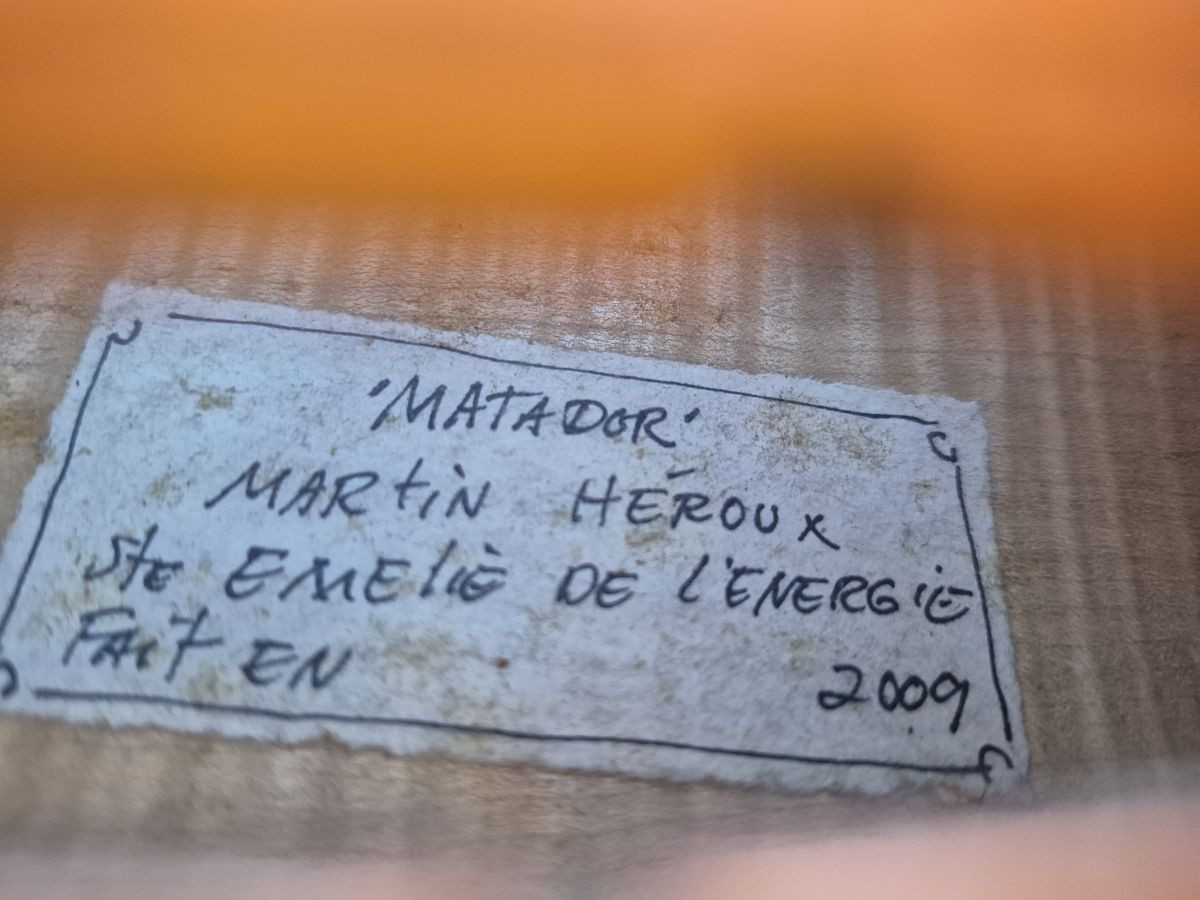 'MATADOR'
MARTIN HÉROUX
STE EMELIE DE L'ENERGIE
FAIT EN 2009